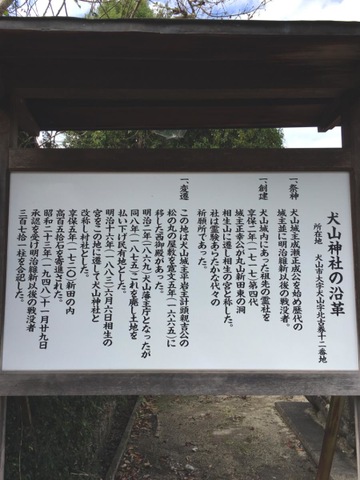 犬山神社の沿革
所在地 犬山市大字犬山字北古券十二番地
一、祭神
犬山城主成瀬正成公を始め歴代の
城主並に明治維新以後の戦没者。
一、創建
犬山城内にあった祖先の霊社を
享保二年(一七一七)第四代
城主正幸公が丸山新田東の洞
相生山に遷し相生の宮と称した。
社は霊験あらたかな代々の
祈願所であった。
一、変遷
この地は犬山城主平岩主計頭親吉公の
松の丸の屋敷を寛文五年(一六六五)に
移した西御殿があった。
明治二年(一八六九)犬山藩主庁となったが
同八年(一八七五)これを廃し土地を
払い下げ民有地とした。
明治十六年(一八八三)六月六日相生の
宮をこの地に遷して犬山神社と
改称し村社となった。
享保五年(一七二〇)新田の内
高百五拾石を寄進された。
昭和二十三年(一九四八)十一月廿九日
承認を受け明治維新以後の戦没者
三百七拾一柱を合祀した。